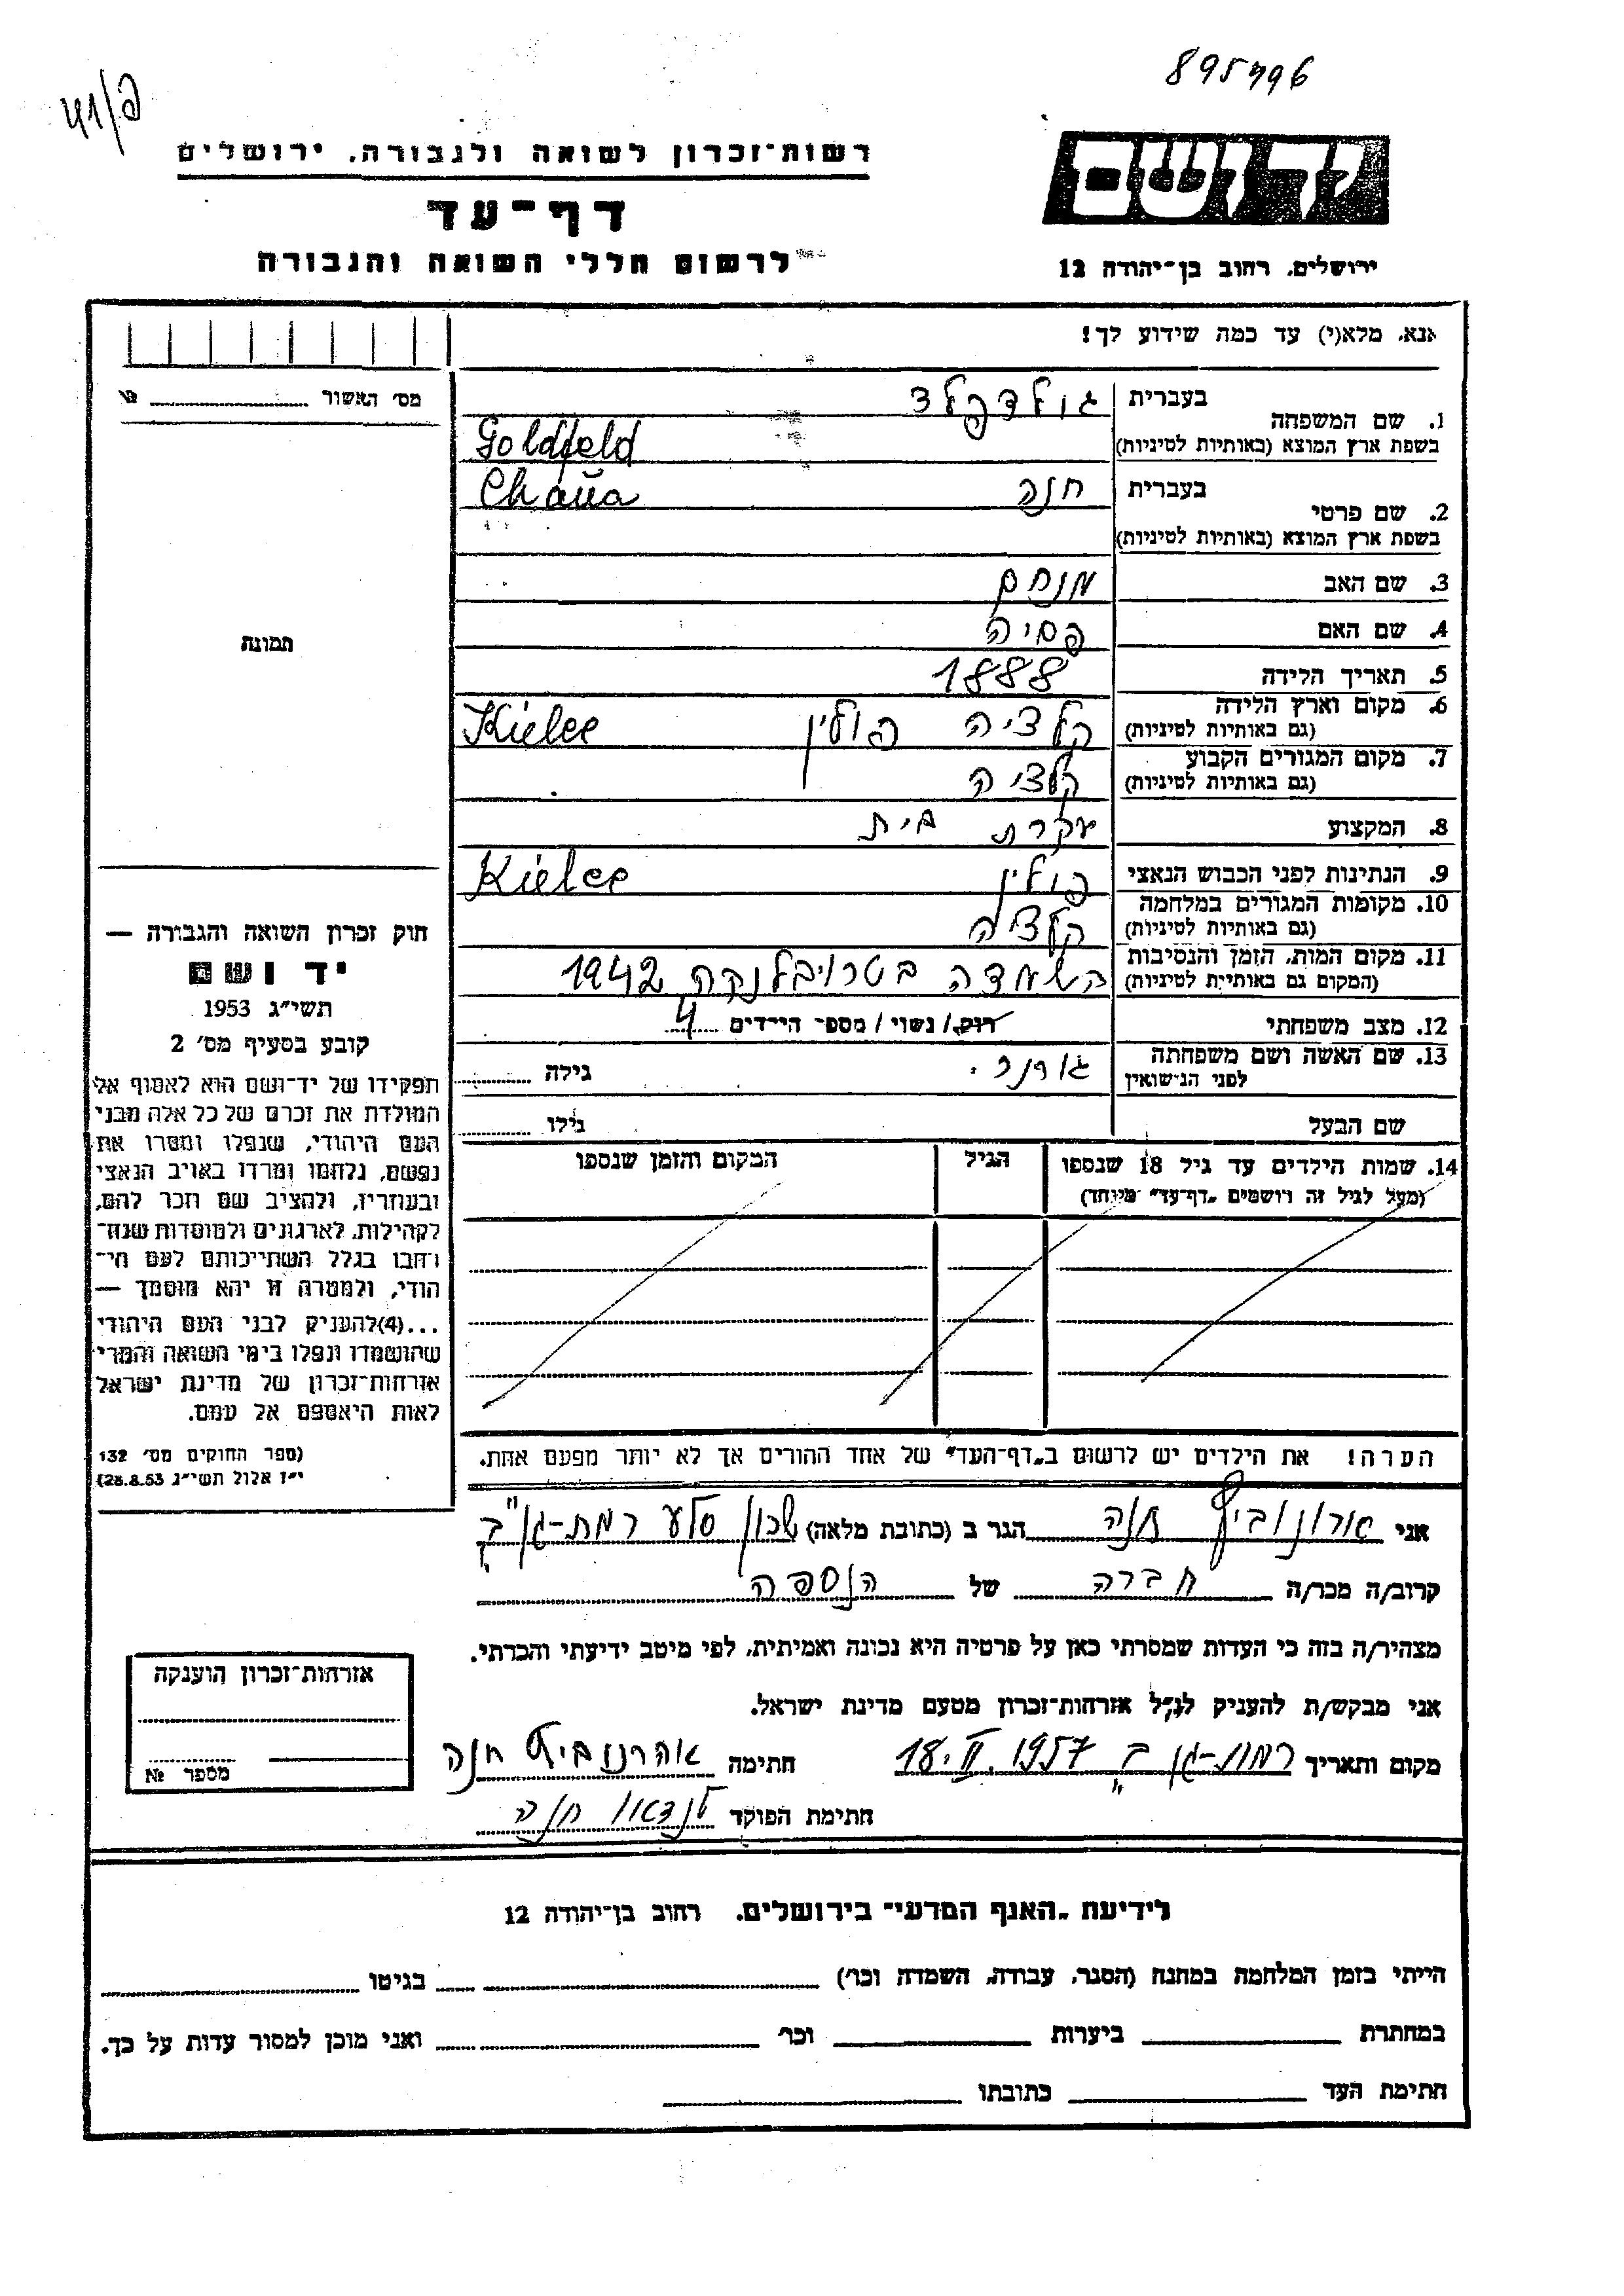 895796
41/פ
רשות־זכרון לשואה ולגבורה, ירושלים
דף־עד
לרשום חללי השואה והגבורה
ידושם
ירושלים, רחוב בן־יהודה 12
אנא, מלא(י) עד כמה שידוע לך!
מס׳ האשור
1. שם המשפחה בעברית גולדפלד
בשפת ארץ המוצא (באותיות לטיניות) Goldfeld
2. שם פרטי בעברית חנה Chana
בשפת ארץ המוצא (באותיות לטיניות)
3. שם האב מנחם
4. שם האם פסיה
5. תאריך הלידה 1888
6. מקום וארץ הלידה (גם באותיות לטיניות) קלציה פולין Kielce
7. מקום המגורים הקבוע (גם באותיות לטיניות) קלציה
8. המקצוע עקרת בית
9. הנתינות לפני הכבוש הנאצי פולין Kielce
10. מקומות המגורים במלחמה (גם באותיות לטיניות) קלציה
11. מקום המות, הזמן והנסיבות (המקום גם באותיות לטיניות) השמדה בטרויבלנקה 1942
12. מצב משפחתי רוק/נשוי/מספר הילדים 4
13. שם האשה ושם משפחתה לפני הנישואין גורנר. גילה
שם הבעל גילו
14. שמות הילדים עד גיל 18 שנספו (מעל לגיל זה רושמים „דף־עד״ מיוחד) הגיל המקום והזמן שנספו
הערה! את הילדים יש לרשום ב„דף־העד״ של אחד ההורים אך לא יותר מפעם אחת.
תמונה
חוק זכרון השואה והגבורה —
יד ושם
תשי״ג 1953
קובע בסעיף מס׳ 2
תפקידו של יד־ושם הוא לאסוף אל
המולדת את זכרם של כל אלה מבני
העם היהודי, שנפלו ומסרו את
נפשם, נלחמו ומרדו באויב הנאצי
ובעוזריו, ולהציב שם וזכר להם,
לקהילות, לארגונים ולמוסדות שנח־
רבו בגלל השתייכותם לעם הי־
הודי, ולמטרה זו יהא מוסמך —
...(4)להעניק לבני העם היהודי
שהושמדו ונפלו בימי השואה והמרי
אזרחות־זכרון של מדינת ישראל
לאות היאספם אל עמם.
(ספר החוקים מס׳ 132
י״ז אלול תשי״ג 28.8.53)
אני אורונוביץ חנה הגר ב (כתובת מלאה) שכון סלע רמת-גן ב״
קרוב/ה מכר/ה חברה של הנספה
מצהיר/ה בזה כי העדות שמסרתי כאן על פרטיה היא נכונה ואמיתית, לפי מיטב ידיעתי והכרתי.
אני מבקש/ת להעניק לנ״ל אזרחות־זכרון מטעם מדינת ישראל.
מקום ותאריך רמת-גן ב״ 18.II.1957 חתימה אהרנוביץ חנה
חתימת הפוקד לנדאו חנה
אזרחות־זכרון הוענקה
מספר №
לידיעת „האגף המדעי״ בירושלים. רחוב בן־יהודה 12
הייתי בזמן המלחמה במחנה (הסגר, עבודה, השמדה וכו׳) בגיטו
במחתרת ביערות וכו׳ ואני מוכן למסור עדות על כך.
חתימת העד כתובתו